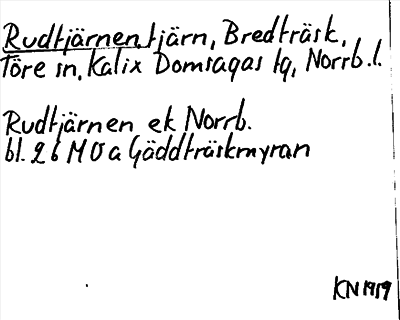 Rudtjärnen, tjärn, Bredträsk,
Töre sn, Kalix Domsagas tg, Norrb. l.
Rudtjärnen ek Norrb.
bl. 26 M O a Gäddträskmyran
KN 1919